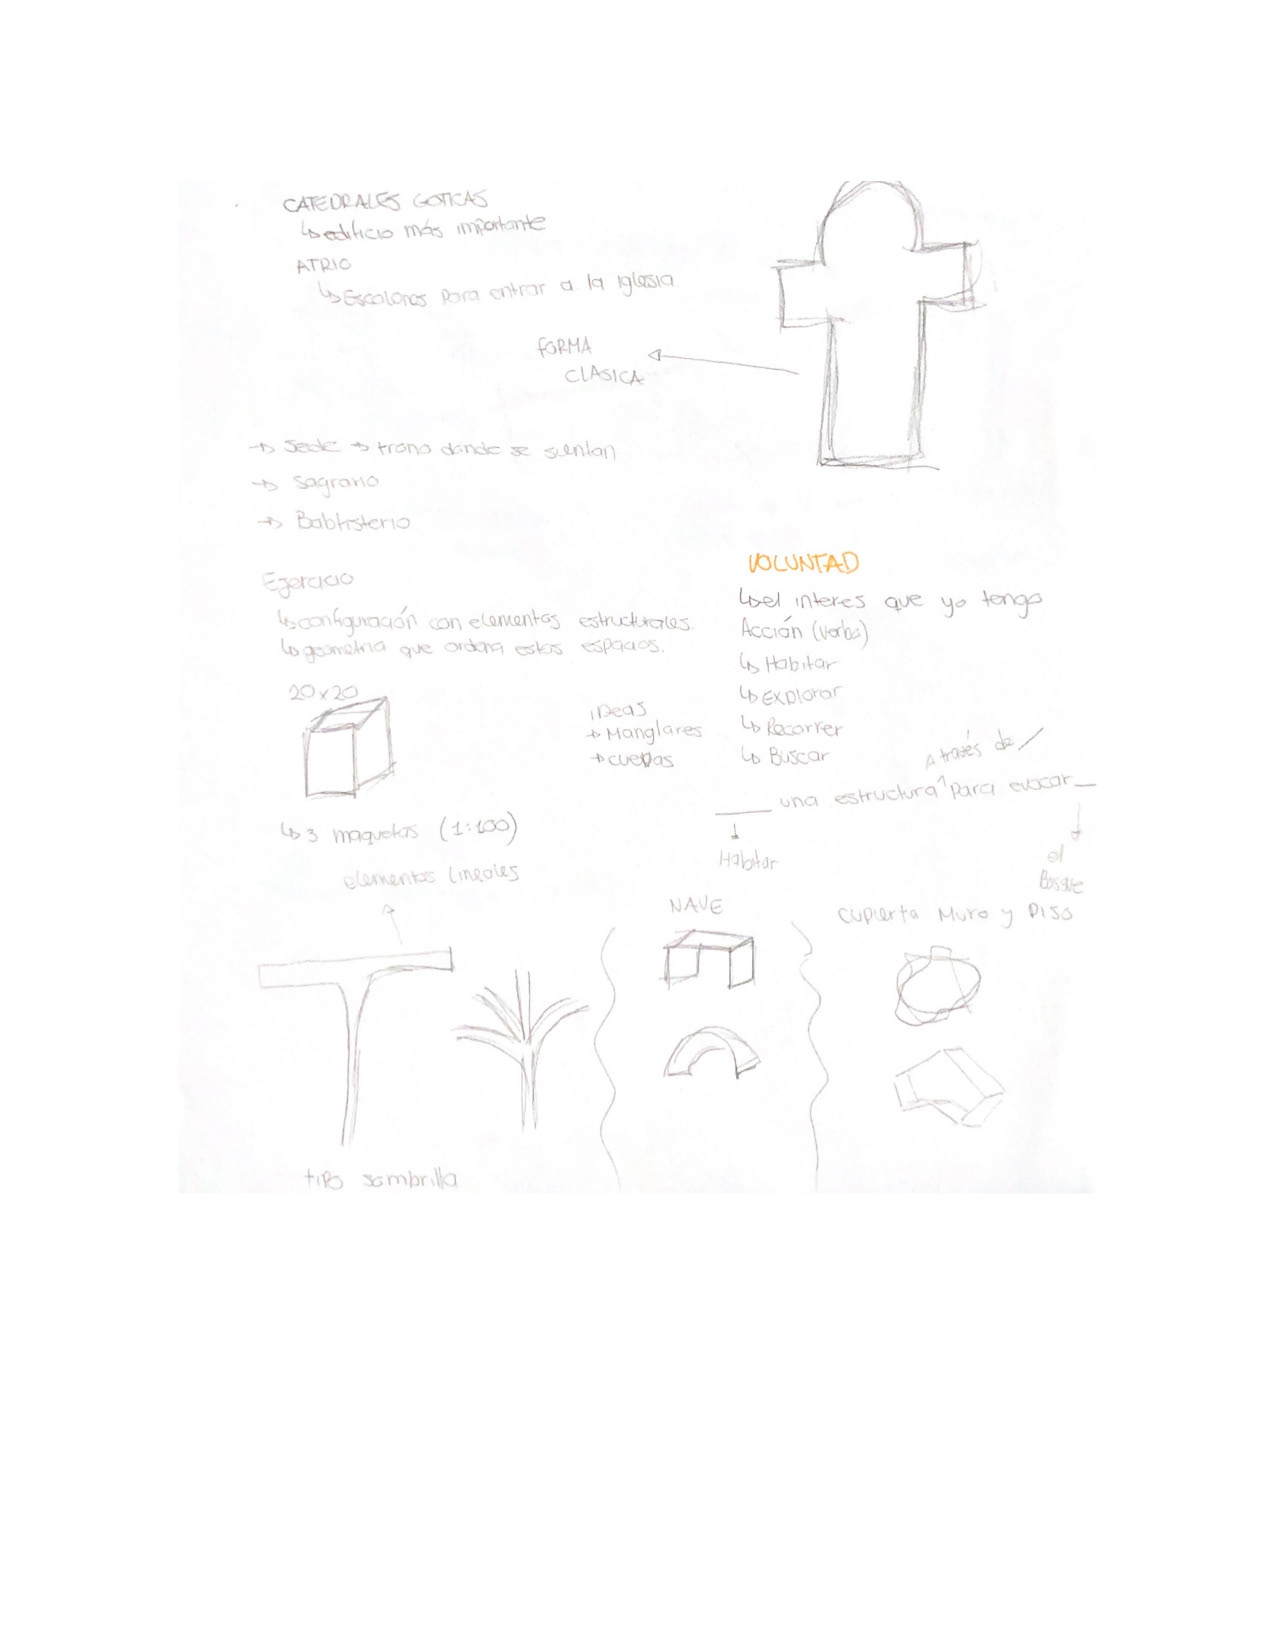 CATEDRALES GOTICAS
↳ edificio más importante
ATRIO
↳ Escalones para entrar a la Iglesia
FORMA
CLASICA
→ Sede → trono donde se sientan
→ Sagrario
→ Babtisterio
Ejercicio
↳ configuración con elementos estructurales.
↳ geometria que ordena estos espacios.
20x20
↳ 3 maquetas (1:100)
elementos lineales
tipo sombrilla
iDeas
→ Manglares
→ cuevas
VOLUNTAD
↳ el interes que yo tengo
Acción (verbo)
↳ Habitar
↳ Explorar
↳ Recorrer
↳ Buscar
A través de
____ una estructura ^ Para evocar __
Habitar
el
Bosque
NAVE
Cupierta Muro y Piso